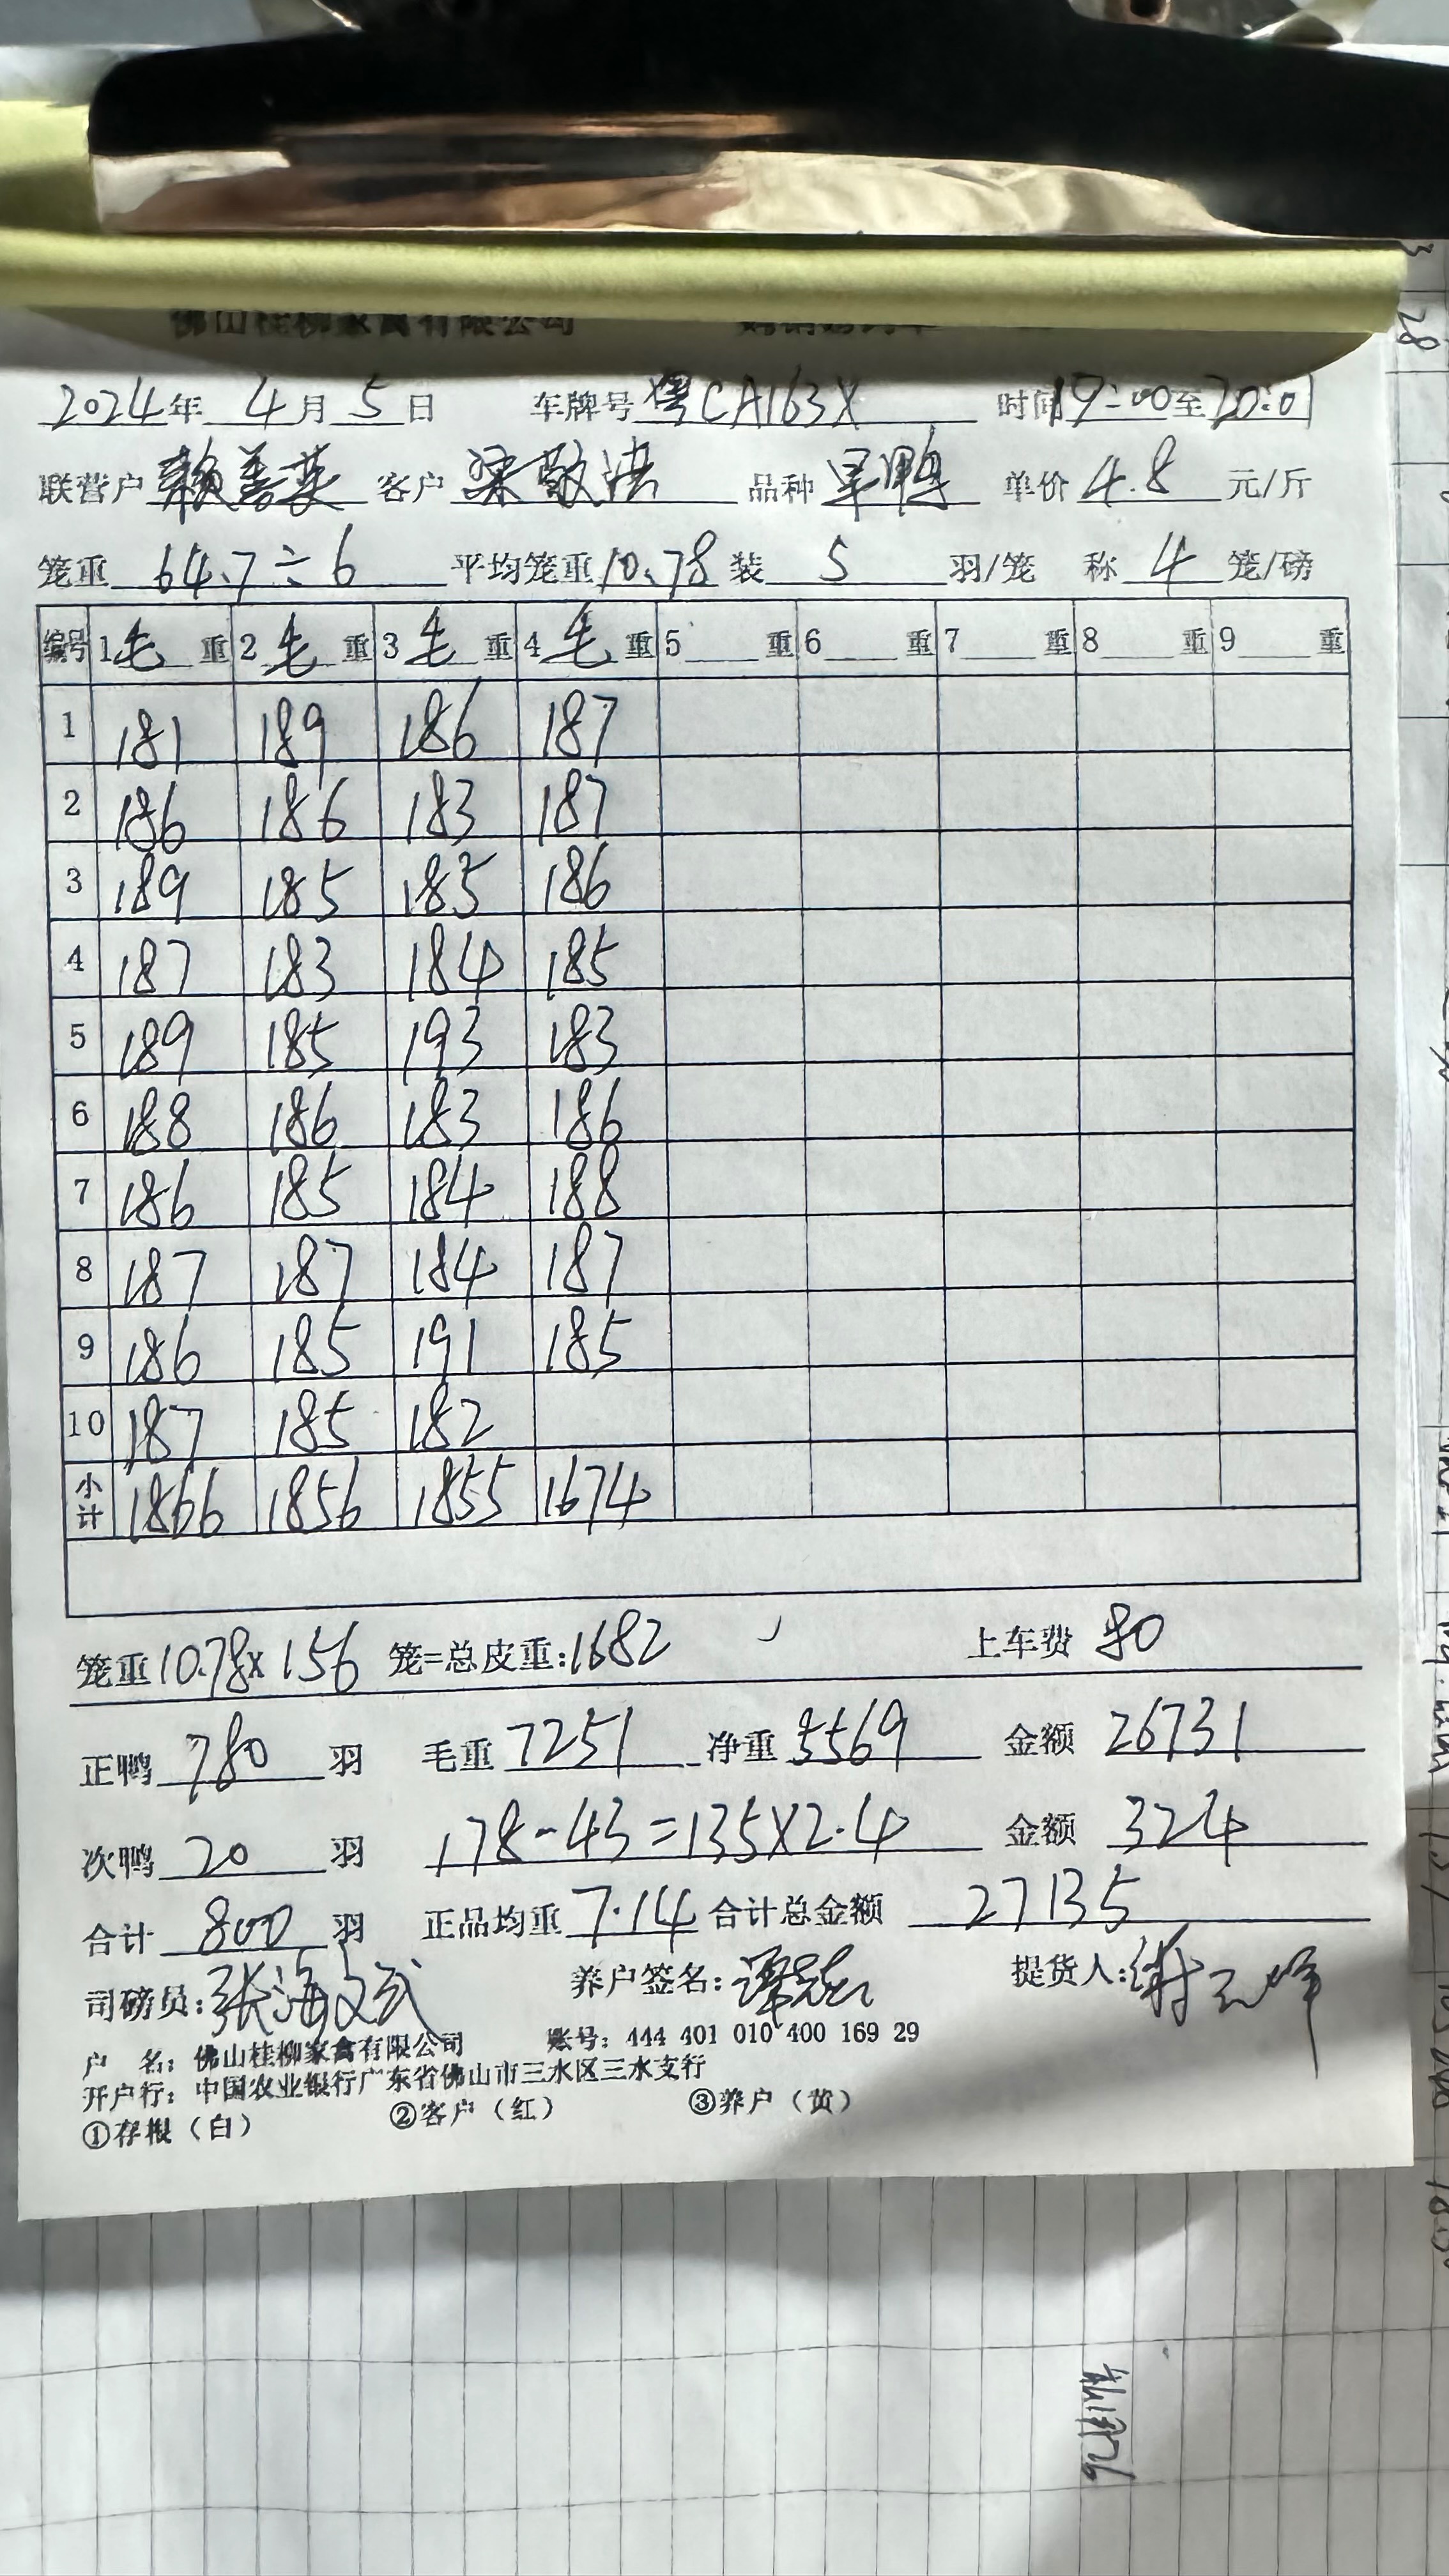 佛山桂柳家禽有限公司
2024年 4月 5日 车牌号 粤CA163X 时间 19:00至20:01
联营户 赖善英 客户 梁敬洪 品种 旱鸭 单价 4.8 元/斤
笼重 64.7÷6 平均笼重 10.78 装 5 羽/笼 称 4 笼/磅
编号 1毛重 2毛重 3毛重 4毛重 5 重 6 重 7 重 8 重 9 重
1 181 189 186 187
2 186 186 183 187
3 189 185 185 186
4 187 183 184 185
5 189 185 193 183
6 188 186 183 186
7 186 185 184 188
8 187 187 184 187
9 186 185 191 185
10 187 185 182
小计 1866 1856 1855 1674
笼重10.78×156 笼=总皮重:1682 上车费 80
正鸭 780 羽 毛重 7251 净重 5569 金额 26731
次鸭 20 羽 178-43=135×2.4 金额 324
合计 800 羽 正品均重 7.14 合计总金额 27135
司磅员: 养户签名: 提货人:
户 名: 佛山桂柳家禽有限公司 账号: 444 401 010 400 169 29
开户行: 中国农业银行广东省佛山市三水区三水支行
①存根(白) ②客户(红) ③养户(黄)